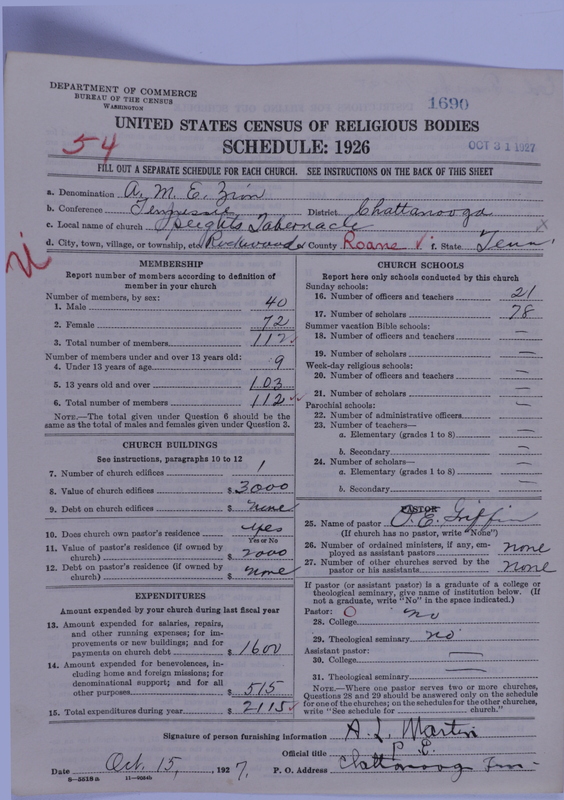 DEPARTMENT OF COMMERCE
BUREAU OF THE CENSUS
WASHINGTON
1690
54
UNITED STATES CENSUS OF RELIGIOUS BODIES
SCHEDULE: 1926
OCT 31 1927
FILL OUT A SEPARATE SCHEDULE FOR EACH CHURCH. SEE INSTRUCTIONS ON THE BACK OF THIS SHEET
a. Denomination A. M. E. Zion
b. Conference Tennessee District Chattanooga
c. Local name of church Heights Tabernacle
d. City, town, village, or township, etc. Rockwood e. County Roane f. State Tenn.
MEMBERSHIP
Report number of members according to definition of
member in your church
Number of members, by sex:
1. Male 40
2. Female 72
3. Total number of members 112
Number of members under and over 13 years old:
4. Under 13 years of age 9
5. 13 years old and over 103
6. Total number of members 112
NOTE.—The total given under Question 6 should be the
same as the total of males and females given under Question 3.
CHURCH BUILDINGS
See instructions, paragraphs 10 to 12
7. Number of church edifices 1
8. Value of church edifices $ 3000
9. Debt on church edifices $ none
10. Does church own pastor's residence yes
Yes or No
11. Value of pastor's residence (if owned by
church) $ 2000
12. Debt on pastor's residence (if owned by
church) $ none
EXPENDITURES
Amount expended by your church during last fiscal year
13. Amount expended for salaries, repairs,
and other running expenses; for im-
provements or new buildings; and for
payments on church debt $ 1600
14. Amount expended for benevolences, in-
cluding home and foreign missions; for
denominational support; and for all
other purposes $ 515
15. Total expenditures during year $ 2115
CHURCH SCHOOLS
Report here only schools conducted by this church
Sunday schools:
16. Number of officers and teachers 21
17. Number of scholars 78
Summer vacation Bible schools:
18. Number of officers and teachers —
19. Number of scholars —
Week-day religious schools:
20. Number of officers and teachers —
21. Number of scholars —
Parochial schools:
22. Number of administrative officers —
23. Number of teachers—
a. Elementary (grades 1 to 8) —
b. Secondary —
24. Number of scholars—
a. Elementary (grades 1 to 8) —
b. Secondary —
PASTOR
25. Name of pastor Griffin
(If church has no pastor, write "None")
26. Number of ordained ministers, if any, em-
ployed as assistant pastors none
27. Number of other churches served by the
pastor or his assistants none
If pastor (or assistant pastor) is a graduate of a college or
theological seminary, give name of institution below. (If
not a graduate, write "No" in the space indicated.)
Pastor: O
28. College no
29. Theological seminary no
Assistant pastor:
30. College —
31. Theological seminary —
NOTE.—Where one pastor serves two or more churches,
Questions 28 and 29 should be answered only on the schedule
for one of the churches; on the schedules for the other churches,
write "See schedule for church."
Signature of person furnishing information A. L. Martin
Official title P. E.
Date Oct. 15, 1927. P. O. Address Chattanooga Tenn.
8—5518a 11—9054b